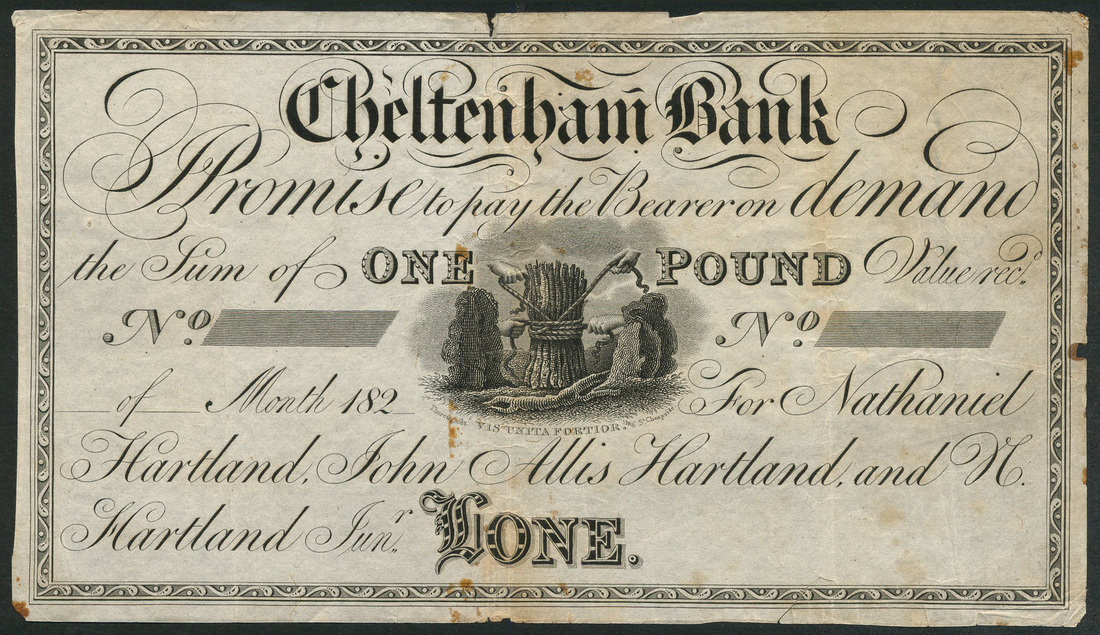 Cheltenham Bank
I Promise to pay the Bearer on demand
the Sum of ONE POUND Value recd.
No. No.
of Month 182
For Nathaniel
VIS UNITA FORTIOR.
Hartland, John Allis Hartland, and N.
Hartland Junr.
£ONE.